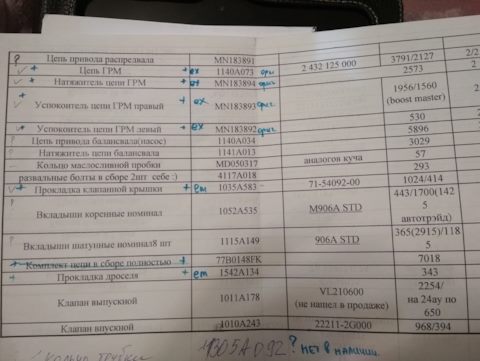 ? Цепь привода распредвала MN183891 2 432 125 000 3791/2127 2/2
✓ + Цепь ГРМ + ex 1140A073 ориг 2573 2
✓ + Натяжитель цепи ГРМ + ex MN183894 ориг
+ Успокоитель цепи ГРМ правый + ex MN183893 ориг 1956/1560 (boost master)
530
+ Успокоитель цепи ГРМ левый + ex MN183892 ориг 5896
Цепь привода балансвала(насос) 1140A034 3029
Натяжитель цепи балансвала 1141A013 57
Кольцо маслосливной пробки MD050317 аналогов куча 293
развальные болты в сборе 2шт себе :) 4117A018
✓ + Прокладка клапанной крышки + em 1035A583 71-54092-00 1024/414
Вкладыши коренные номинал 1052A535 M906A STD 443/1700(1425 автотрэйд)
? Вкладыши шатунные номинал8 шт 1115A149 906A STD 365(2915)/1185
+ Комплект цепи в сборе полностью + 77B0148FK 7018
+ Прокладка дроселя + em 1542A134 343
Клапан выпускной 1011A178 VL210600 (не нашел в продаже) 2254/ на 24ау по 650
Клапан впускной 1010A243 22211-2G000 968/394
1305A092 ? нет в наличии